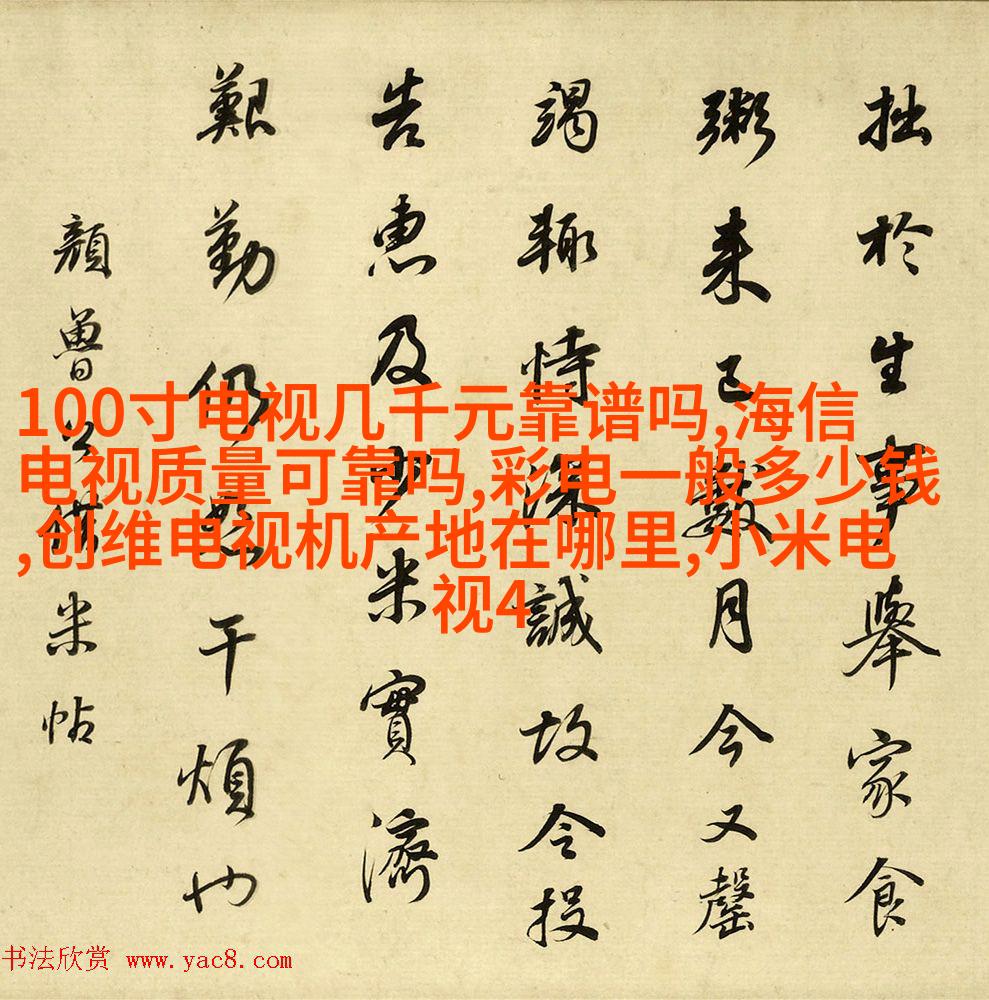 拙於生事舉家食
粥来已數月今又罄
竭輙恃深誠故令投
告惠及少米實濟
艱勤仍恕干煩也
顏魯公借米帖
100寸电视几千元靠谱吗,海信
电视质量可靠吗,彩电一般多少钱
,创维电视机产地在哪里,小米电
视4
书法欣赏 www.yac8.com